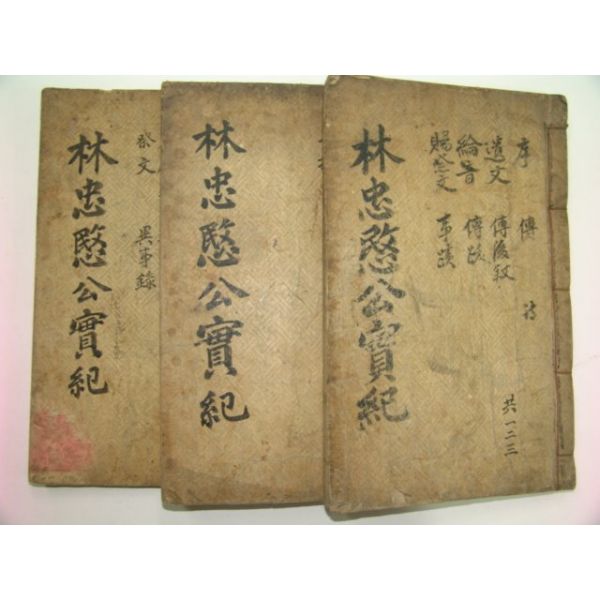 序 傳
遺文 傳後叙
綸音 傳跋
賜祭文 事蹟
林忠愍公實紀
共一二三
林忠愍公實紀
祭文 異事錄
林忠愍公實紀